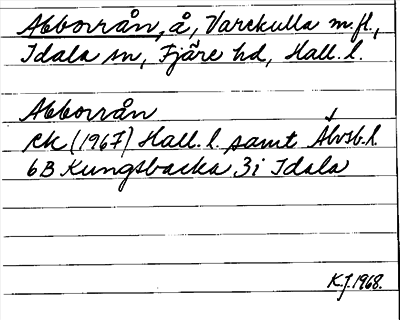 Abborrån, å, Varekulla m.fl.,
Idala sn, Fjäre hd, Hall. l.
Abborrån
rk (1967) Hall. l. samt Älvsb. l.
6B Kungsbacka 3i Idala
K.J. 1968.